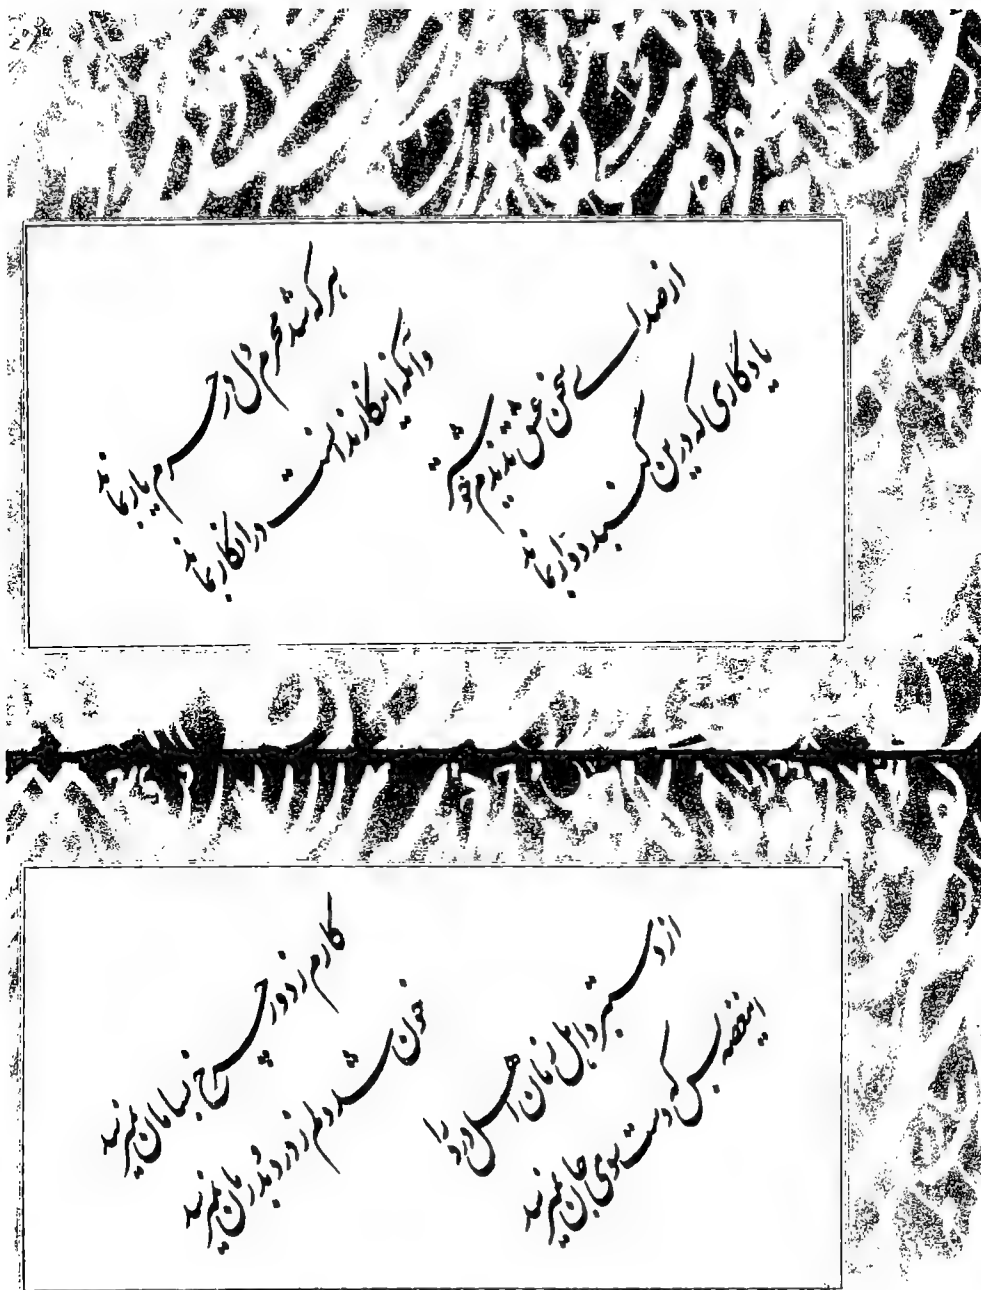 از صدای سخن عشق ندیدم خوشتر
یادگاری که درین گنبد دوار بماند
هر که شد محرم دل در حرم یار بماند
وآنکه این کار ندانست در انکار بماند
از دستبرد اهل زمان اهل درد را
این غصه بس که دست سوی جان نمیرسد
کارم ز دور چرخ بسامان نمیرسد
خون شد دلم ز درد بدرمان نمیرسد